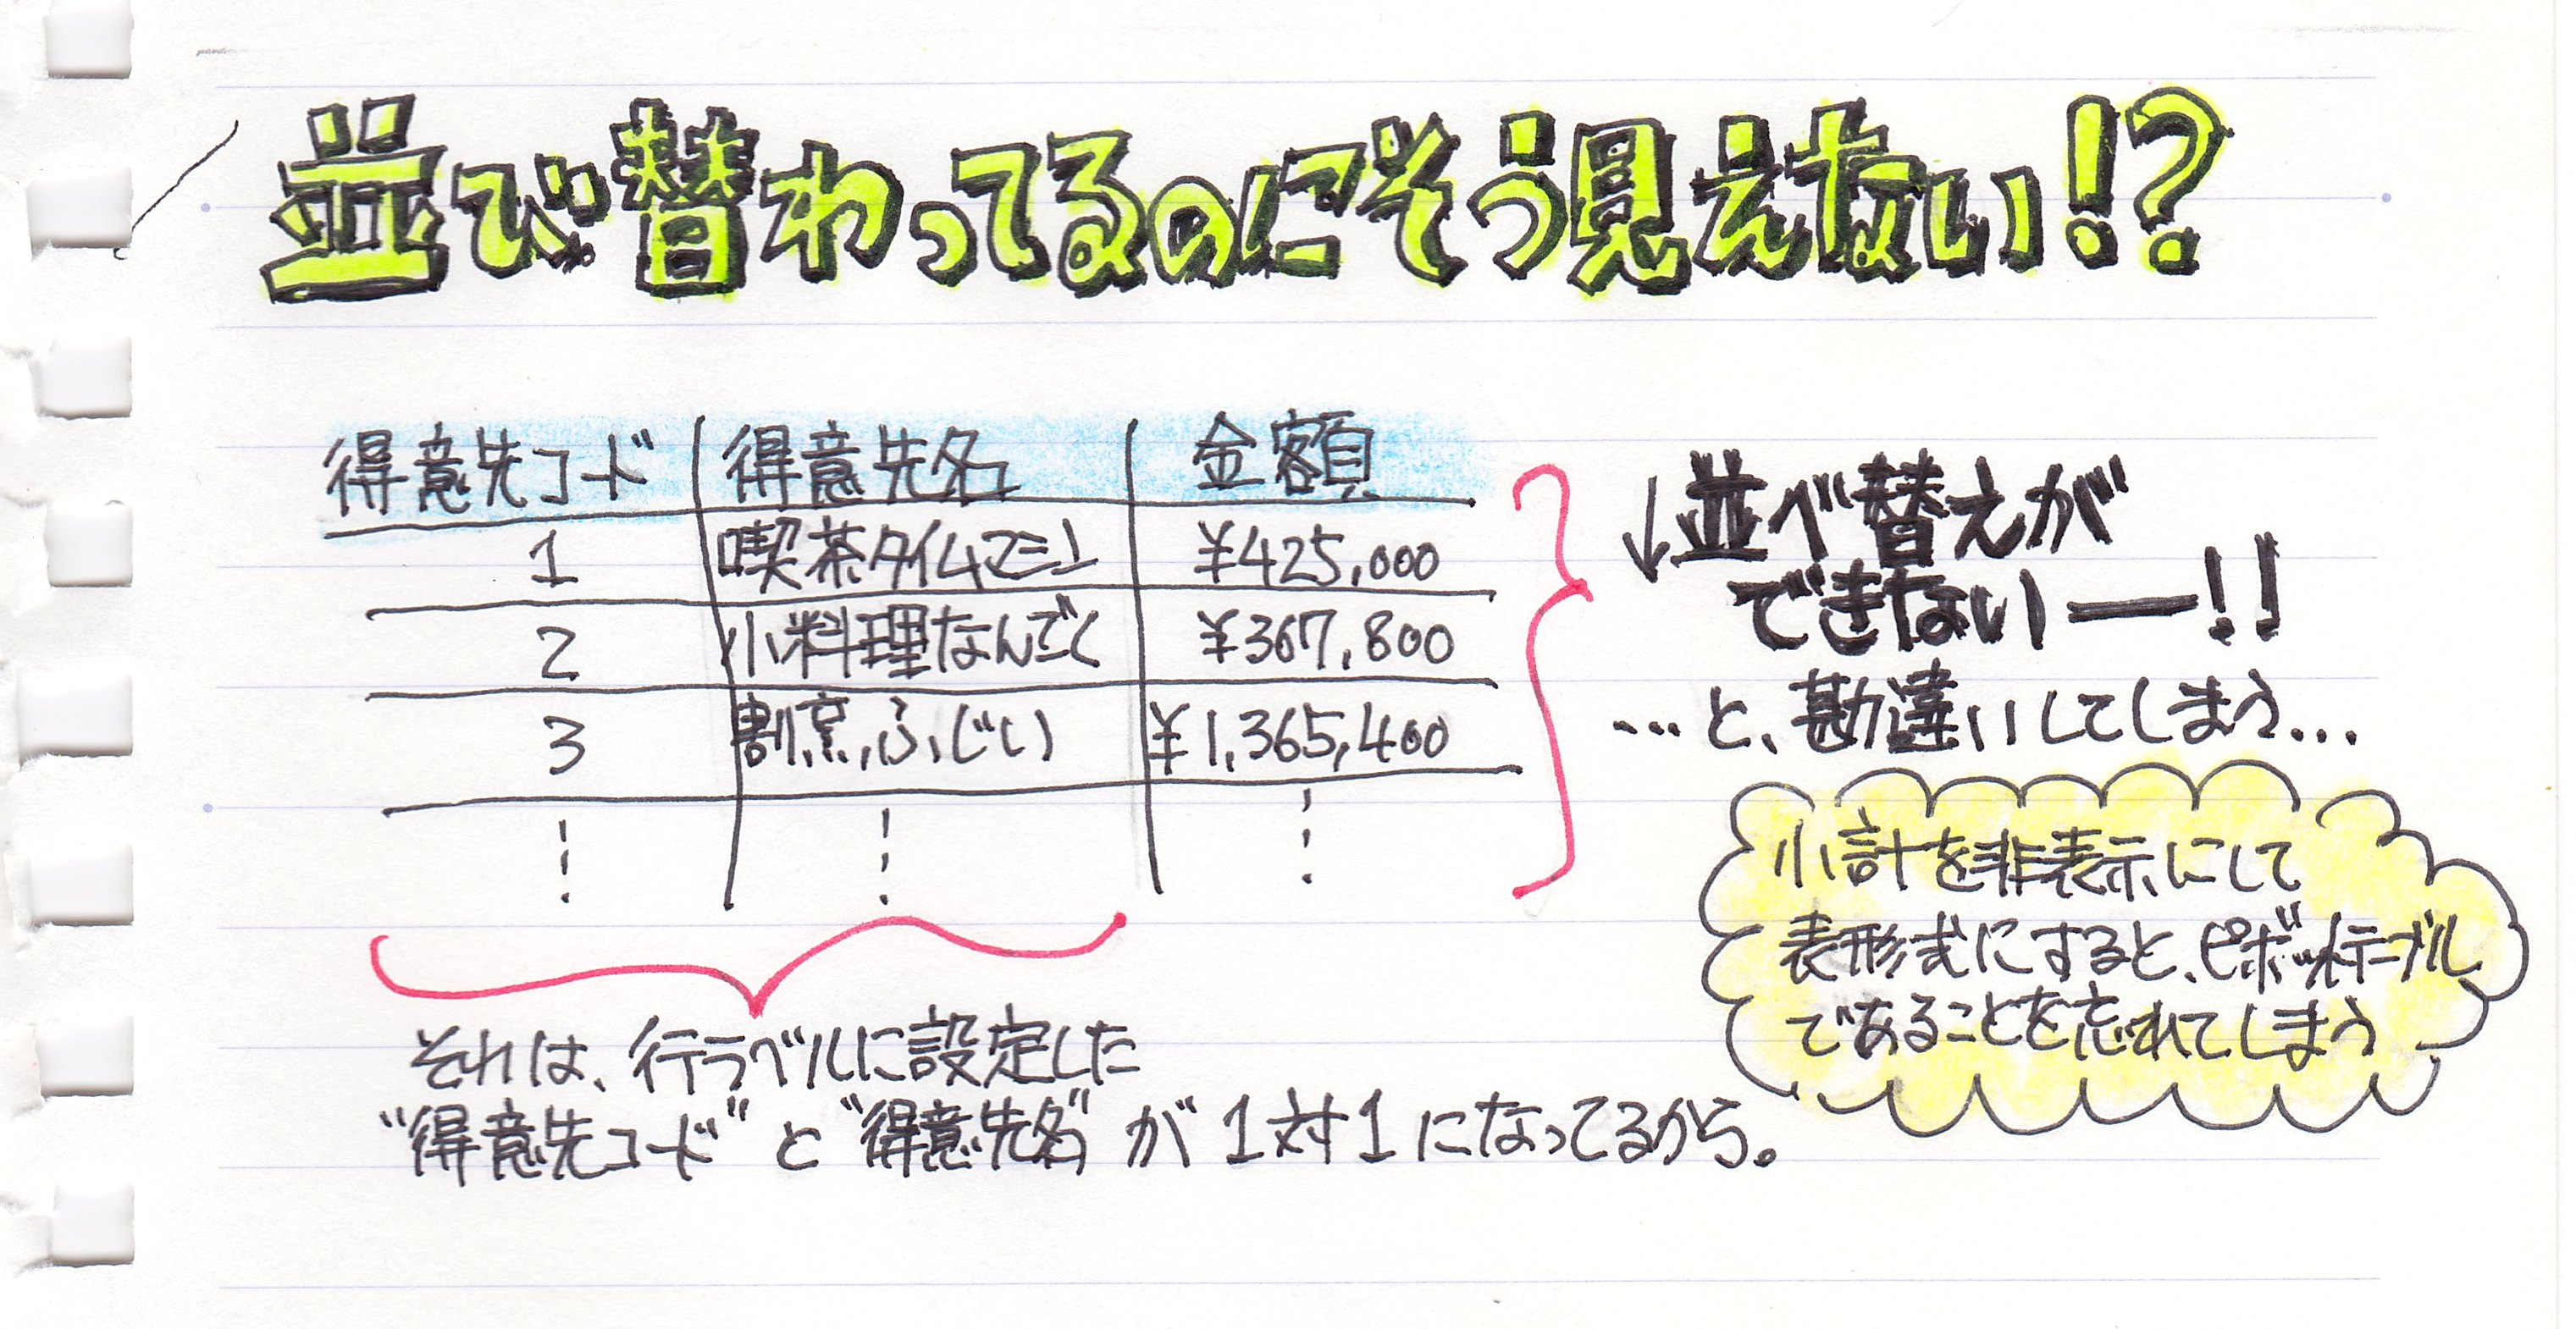 並び替わってるのにそう見えない!?
得意先コード 得意先名 金額
1 喫茶タイムマシン ¥425,000
2 小料理なんごく ¥367,800
3 割烹ふじい ¥1,365,400
↓並べ替えが
できないー!!
…と、勘違いしてしまう…
小計を非表示にして
表形式にすると、ピボットテーブル
であることを忘れてしまう
それは、行ラベルに設定した
"得意先コード"と"得意先名"が1対1になってるから。